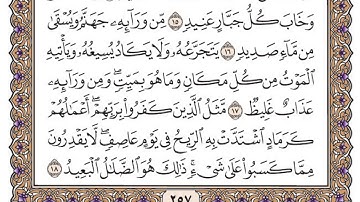 وَخَابَ كُلُّ جَبَّارٍ عَنِيدٍ ١٥ مِّن وَرَآئِهِۦ جَهَنَّمُ وَيُسْقَىٰ
مِن مَّآءٍ صَدِيدٍ ١٦ يَتَجَرَّعُهُۥ وَلَا يَكَادُ يُسِيغُهُۥ وَيَأْتِيهِ
ٱلْمَوْتُ مِن كُلِّ مَكَانٍ وَمَا هُوَ بِمَيِّتٍ ۖ وَمِن وَرَآئِهِۦ
عَذَابٌ غَلِيظٌ ١٧ مَّثَلُ ٱلَّذِينَ كَفَرُوا۟ بِرَبِّهِمْ ۖ أَعْمَـٰلُهُمْ
كَرَمَادٍ ٱشْتَدَّتْ بِهِ ٱلرِّيحُ فِى يَوْمٍ عَاصِفٍ ۖ لَّا يَقْدِرُونَ
مِمَّا كَسَبُوا۟ عَلَىٰ شَىْءٍ ۚ ذَٰلِكَ هُوَ ٱلضَّلَـٰلُ ٱلْبَعِيدُ ١٨
٢٥٧